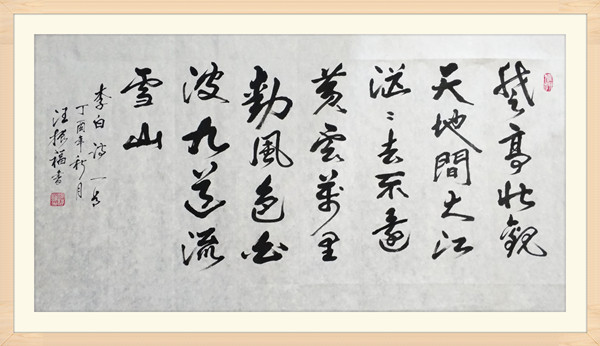 登高壮觀
天地間大江
茫茫去不還
黄雲萬里
動風色白
波九道流
雪山
李白诗一首
丁酉年秋月
汪振福书